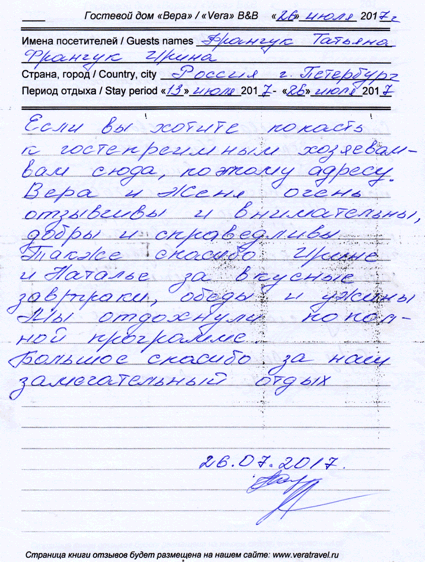 Гостевой дом «Вера» / «Vera» B&B «26» июля 2017 г
Имена посетителей / Guests names Франчук Татьяна
Франчук Ирина
Страна, город / Country, city Россия г. Петербург
Период отдыха / Stay period «13» июля 2017 - «26» июля 2017
Если вы хотите попасть
к гостеприимным хозяевам-
вам сюда, поэтому адресу.
Вера и Женя очень
отзывчивы и внимательны,
добры и справедливы
Также спасибо Ирине
и Наталье за вкусные
завтраки, обеды и ужины
Мы отдохнули по пол-
ной программе
Большое спасибо за наш
замечательный отдых
26.07.2017.
Страница книги отзывов будет размещена на нашем сайте: www.veratravel.ru